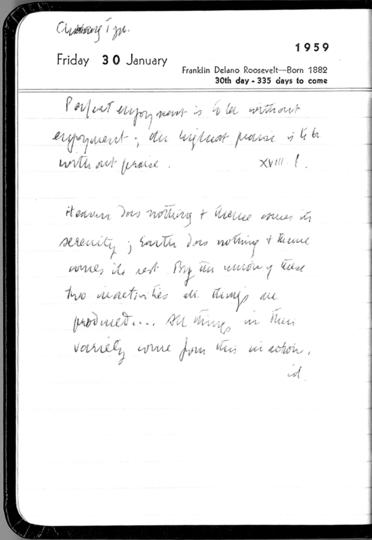 Chuang Tzu.
1959
Friday 30 January
Franklin Delano Roosevelt—Born 1882
30th day - 335 days to come
Perfect enjoyment is to be without
enjoyment; the highest praise is to be
without praise. XVIII. 1.
Heaven does nothing & thence comes its
serenity; Earth does nothing & thence
comes its rest. By the union of these
two inactivities all things are
produced.... All things in their
variety come from this inaction.
id.